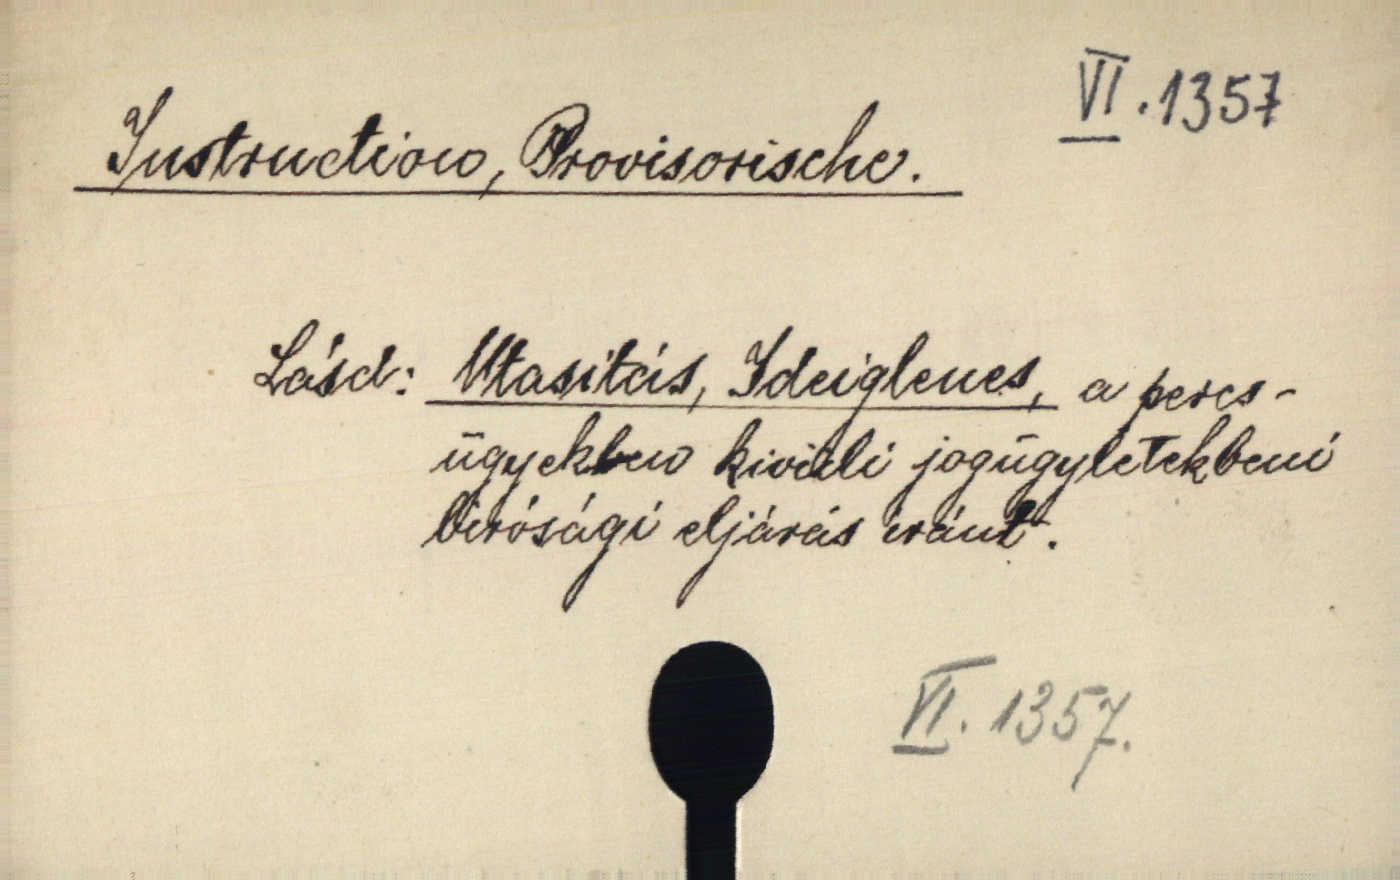 VI. 1357
Instruction, Provisorische.
Lásd: Utasitás, Ideiglenes, a peres-
ügyekben kivüli jogügyletekbeni
birósági eljárás iránt.
VI. 1357.